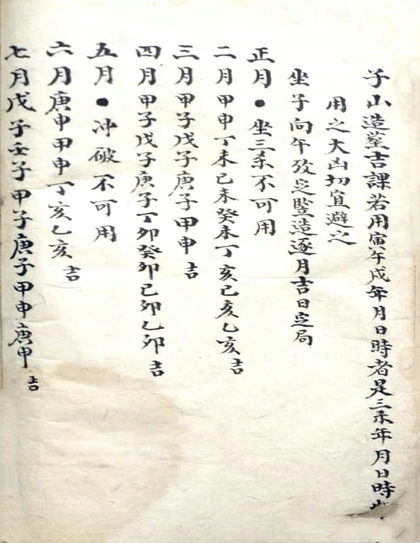 子山造葬吉課若用寅午戌年月日時者是三杀年月日時此
用之大凶切宜避之
坐子向午攷定竪造逐月吉日定局
正月●坐三杀不可用
二月甲申丁未己未癸未丁亥己亥乙亥吉
三月甲子戊子庚子甲申吉
四月甲子戊子庚子丁卯癸卯己卯乙卯吉
五月●冲破不可用
六月庚申甲申丁亥乙亥吉
七月戊子壬子甲子庚子甲申庚申吉